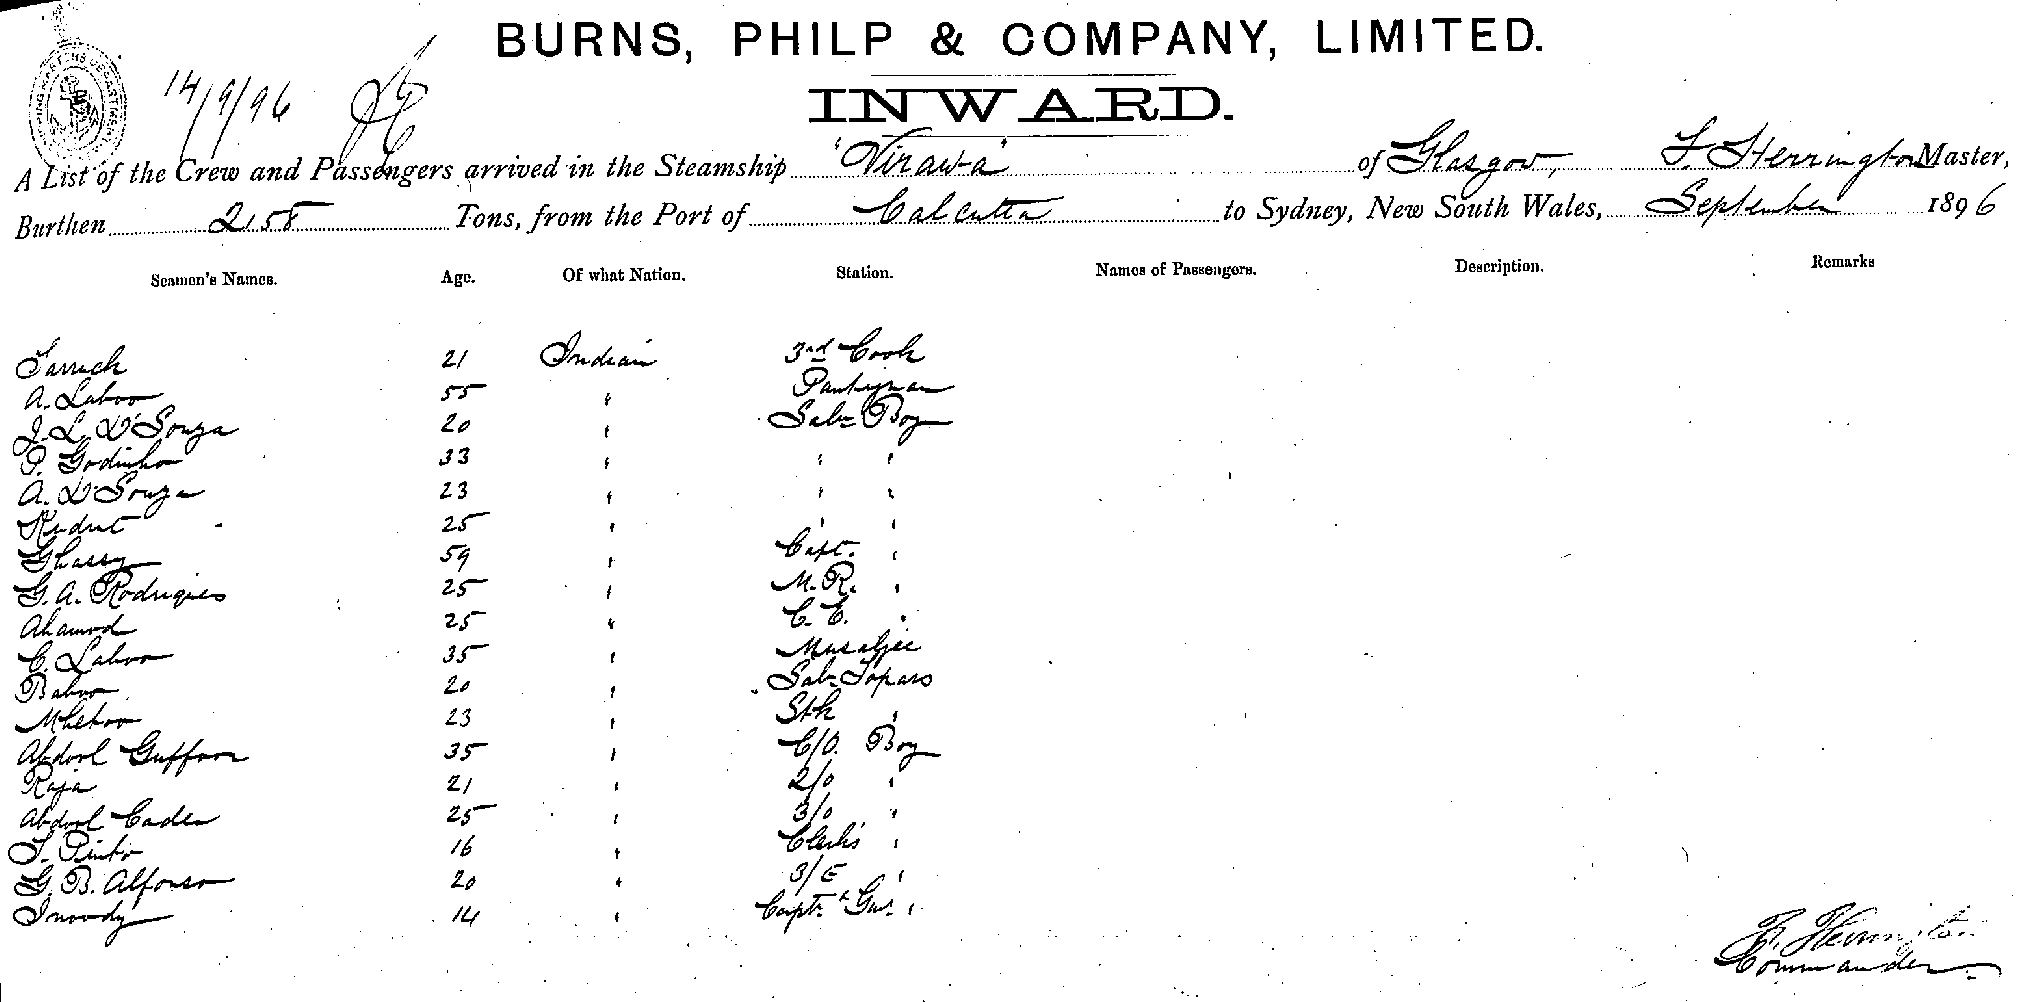 BURNS, PHILP & COMPANY, LIMITED.
14/9/96
INWARD.
A List of the Crew and Passengers arrived in the Steamship "Virawa" of Glasgow, F. Herrington Master,
Burthen 2158 Tons, from the Port of Calcutta to Sydney, New South Wales, September 1896
Seamen's Names. Age. Of what Nation. Station. Names of Passengers. Description. Remarks
21 Indian 3rd Cook
A. Laboo 55 " Pantryman
J. L. D'Souza 20 " Saln Boy
P. Godinho 33 " " "
A. D'Souza 23 " " "
25 " " "
59 " Capt. "
G. A. Rodrigues 25 " M. R. "
Ahamod 25 " C. E. "
C. Laboo 35 "
Baboo 20 " Saln Topass
23 " Sth "
Abdool Guffoor 35 " C/O. Boy
Raja 21 " 2/O "
Abdool Cader 25 " 3/O "
Pinto 16 " Clerk's "
G. B. Alfonso 20 " 3/E "
14 " "
F. Herrington
Commander